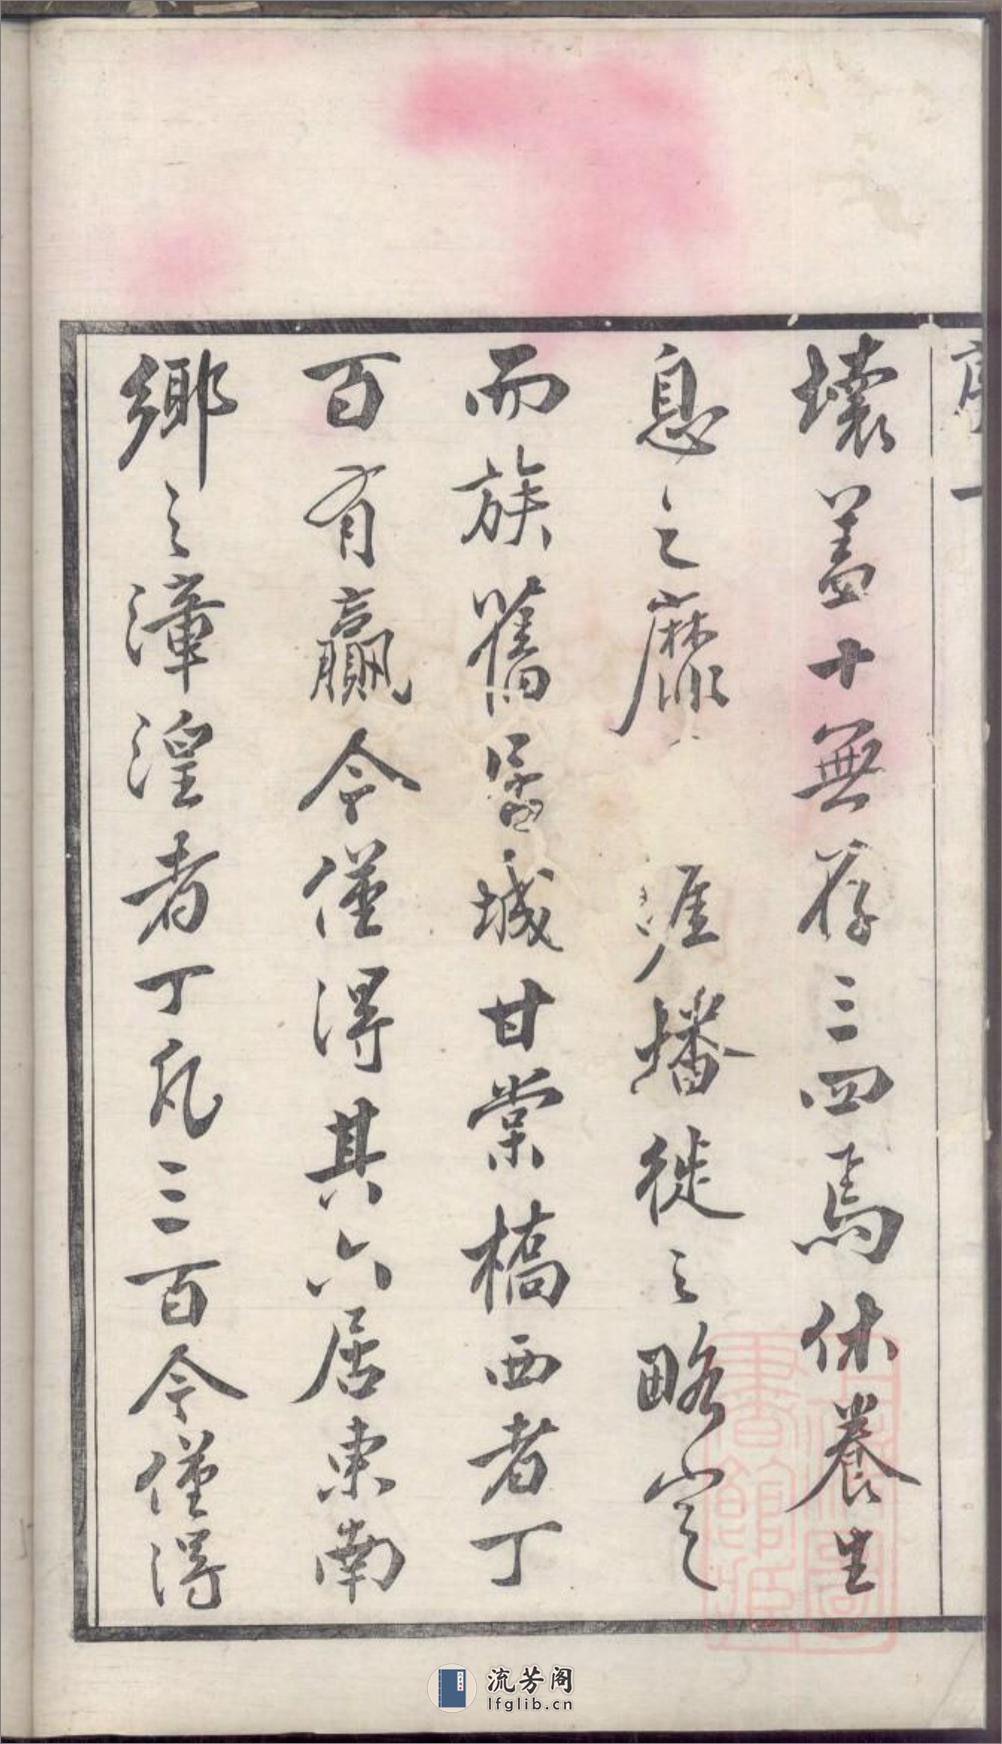 序 一
壞蓋十無存三四焉休養生
息之靡 涯播徙之略定
而族舊居城甘棠橋西者丁
百有贏今僅得其六居東南
鄉之漳湟者丁凡三百今僅得
流芳阁
lfglib.cn